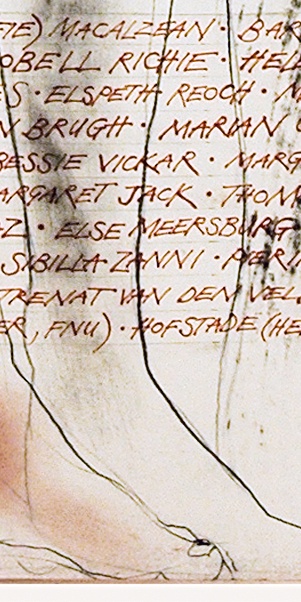 FIE) MACALZEAN · BAR
OBELL RICHIE · HELE
S · ELSPETH REOCH · M
N BRUGH · MARIAN
BESSIE VICKAR · MARG
ARGARET JACK · THOM
Z · ELSE MEERSBURG
SIBILLA ZANNI · PIERI
TRENAT VAN DEN VEL
ER, FNU) · HOFSTADE (HE